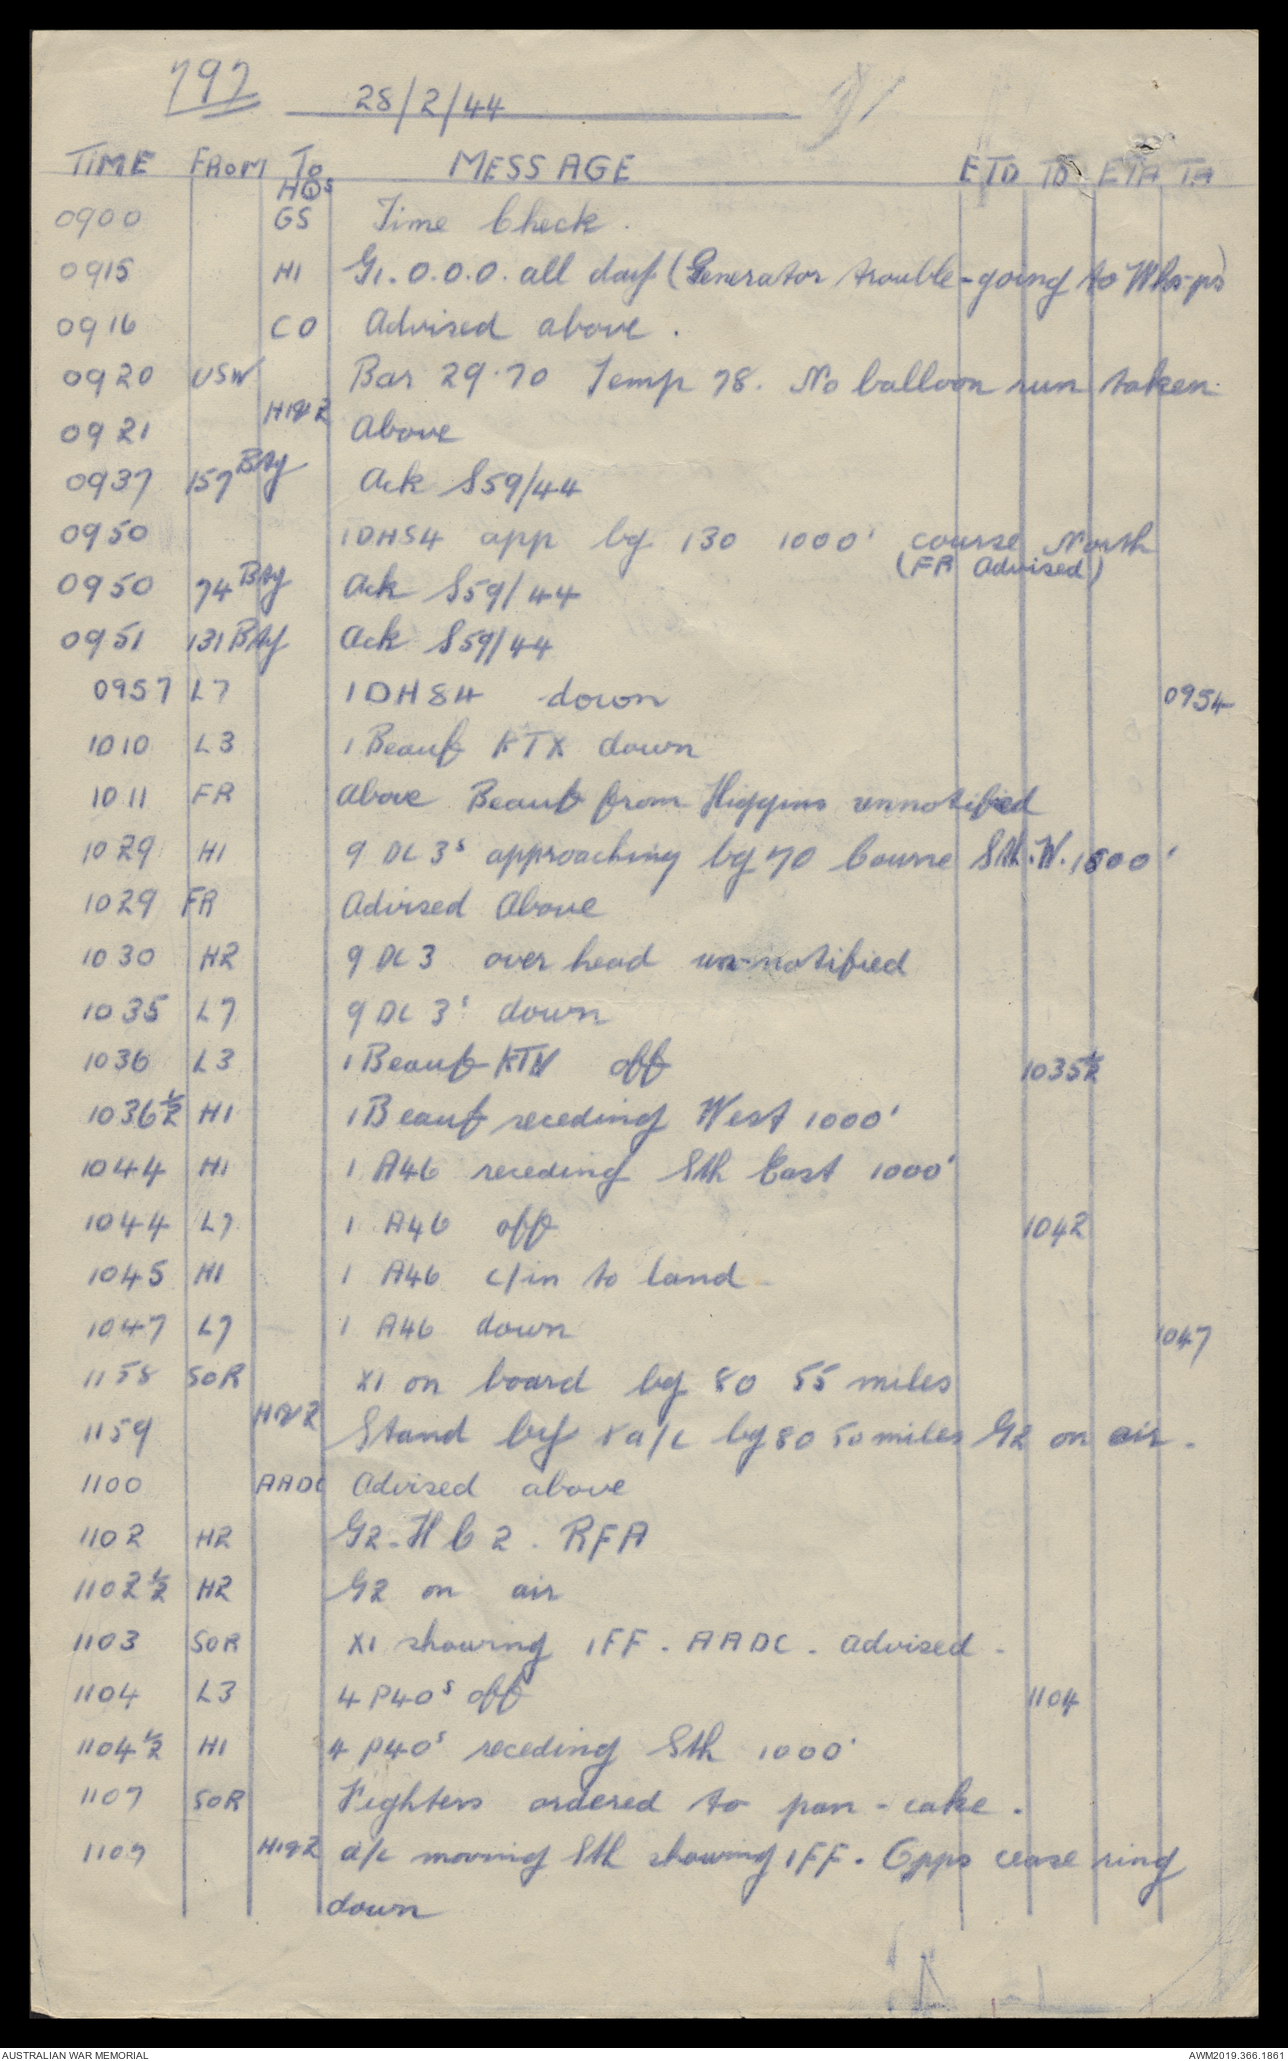 797
28/2/44
TIME FROM To MESSAGE ETD TD ETA TA
HQs
0900 GS Time Check.
0915 H1 G1. O.O.O. all day (Generator trouble - going to Wks-ps)
0916 CO Advised above.
0920 USW Bar 29.70 Temp 78. No balloon run taken.
0921 H1&2 Above
0937 157 Bty Ack S59/44
0950 1DH84 app bg 130 1000' course North
(FR Advised)
0950 74 Bty Ack S59/44
0951 131 Bty Ack S59/44
0957 L7 1 DH84 down 0954
1010 L3 1 Beauf KTX down
1011 FR Above Beauf from Higgins unnotified
1029 H1 9 DC3s approaching bg 70 Course Sth.W. 1800'
1029 FR Advised Above
1030 H2 9 DC3 over head un-notified
1035 L7 9 DC3s down
1036 L3 1 Beauf KTX off 1035½
1036½ H1 1 Beauf receding West 1000'
1044 H1 1 A46 receding Sth East 1000'
1044 L7 1 A46 off 1042
1045 H1 1 A46 c/in to land
1047 L7 1 A46 down 1047
1158 SOR X1 on board bg 80 55 miles
1159 H1&2 Stand by X a/c bg 80 50 miles G2 on air.
1100 AADC Advised above
1102 H2 G2-H C 2. RFA
1102½ H2 G2 on air
1103 SOR X1 showing IFF. AADC. advised.
1104 L3 4 P40s off 1104
1104½ H1 4 P40s receding Sth 1000'
1107 SOR Fighters ordered to pan-cake.
1107 H1&2 a/c moving Sth showing IFF. Opps cease ring
down
AUSTRALIAN WAR MEMORIAL AWM2019.366.1861